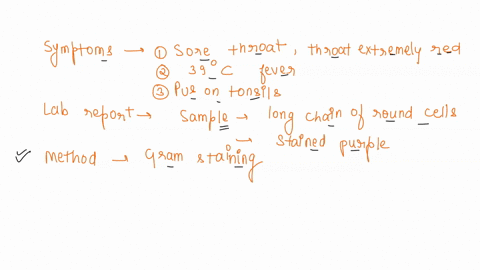 Symptoms → ① Sore throat, throat extremely red
② 39°C fever
③ Pus on tonsills
Lab report → Sample → long chain of round cells
→ Stained purple
✓ Method → Gram staining